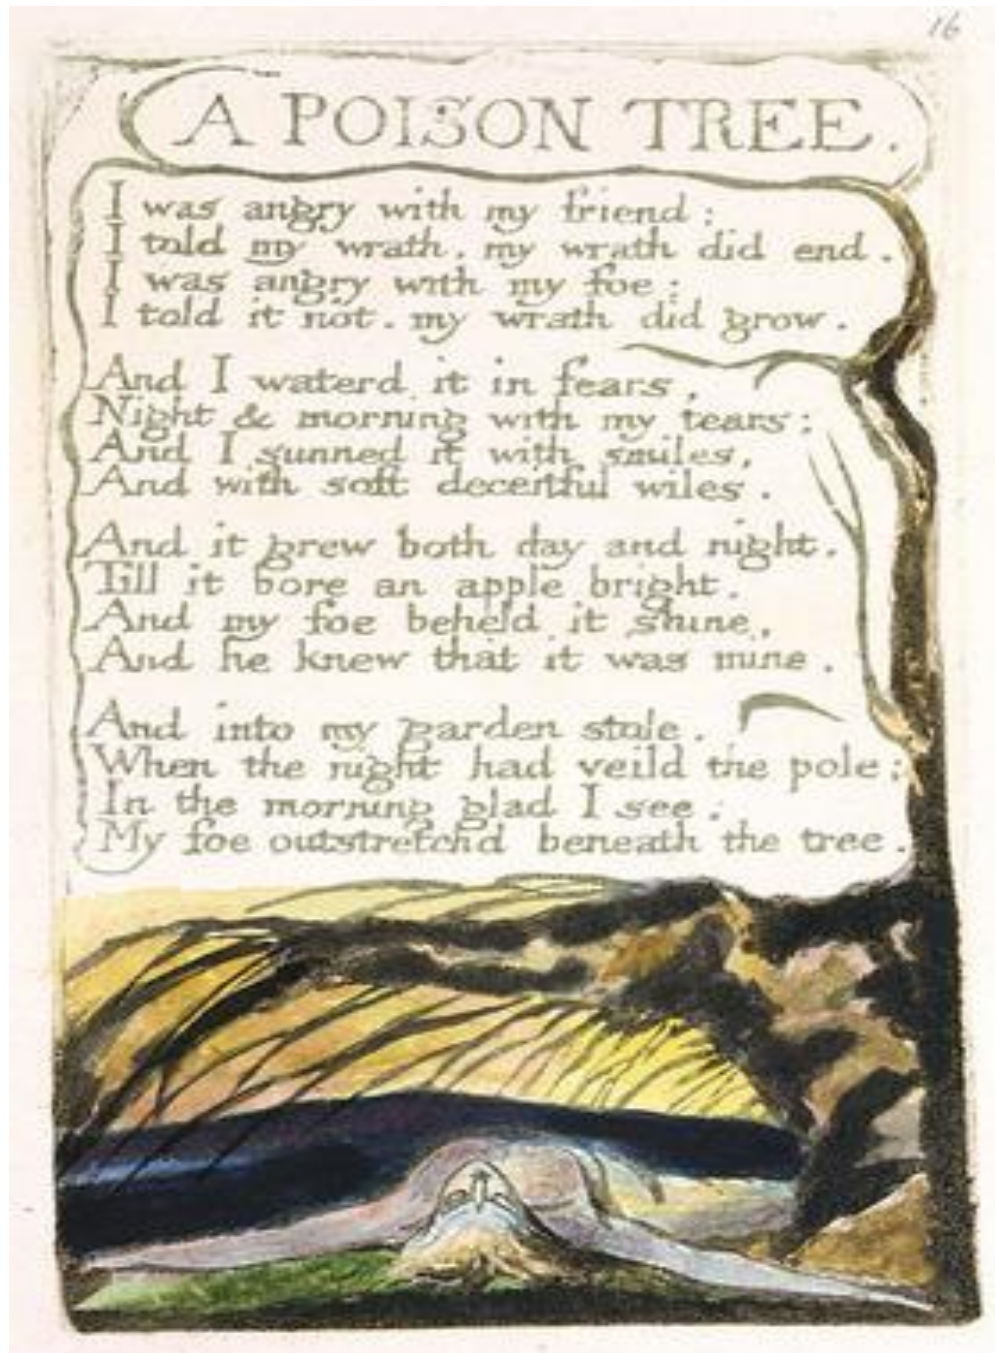 16
A POISON TREE.
I was angry with my friend:
I told my wrath. my wrath did end.
I was angry with my foe:
I told it not. my wrath did grow.
And I waterd it in fears,
Night & morning with my tears:
And I sunned it with smiles,
And with soft deceitful wiles.
And it grew both day and night.
Till it bore an apple bright.
And my foe beheld it shine,
And he knew that it was mine.
And into my garden stole.
When the night had veild the pole;
In the morning glad I see;
My foe outstretchd beneath the tree.